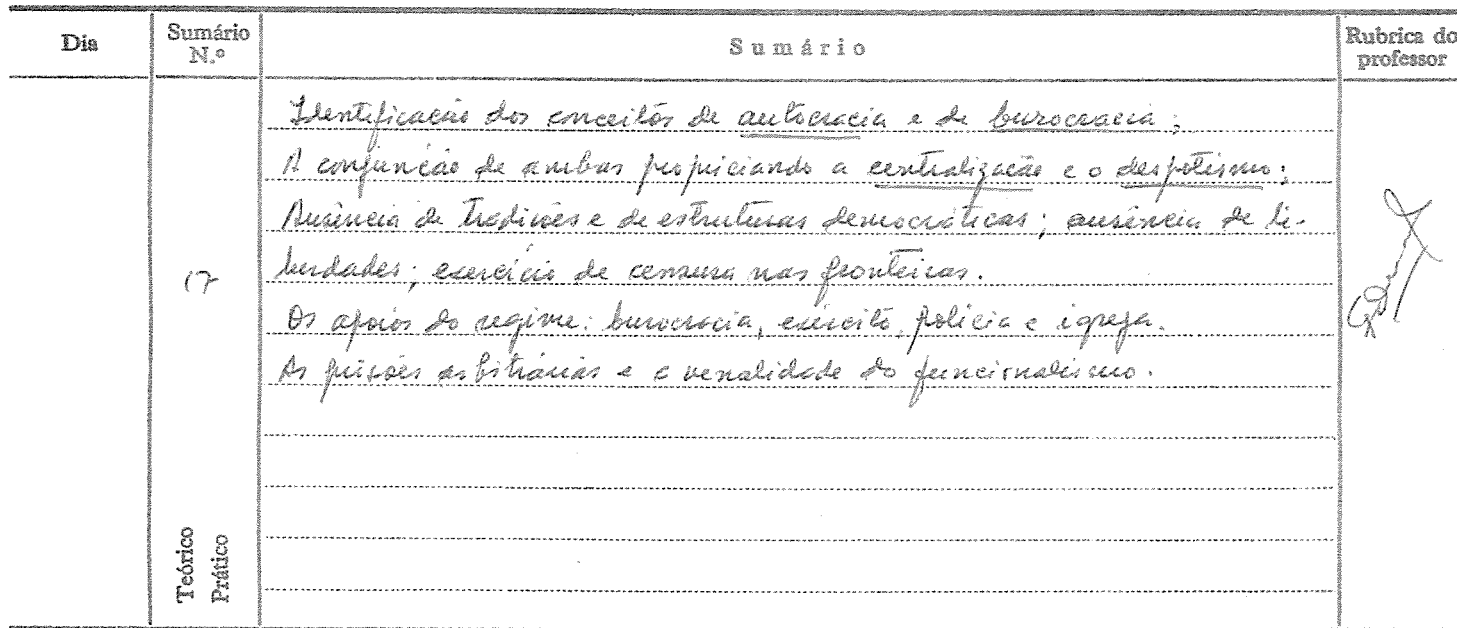 Dia
Sumário N.º
Sumário
Rubrica do professor
Identificação dos conceitos de autocracia e de burocracia;
A conjunção de ambas propiciando a centralização e o despotismo;
Ausência de tradições e de estruturas democráticas; ausência de li-
berdades; exercício de censura nas fronteiras.
17
Os apoios do regime: burocracia, exército, polícia e igreja.
As prisões arbitrárias e a venalidade do funcionalismo.
Teórico
Prático